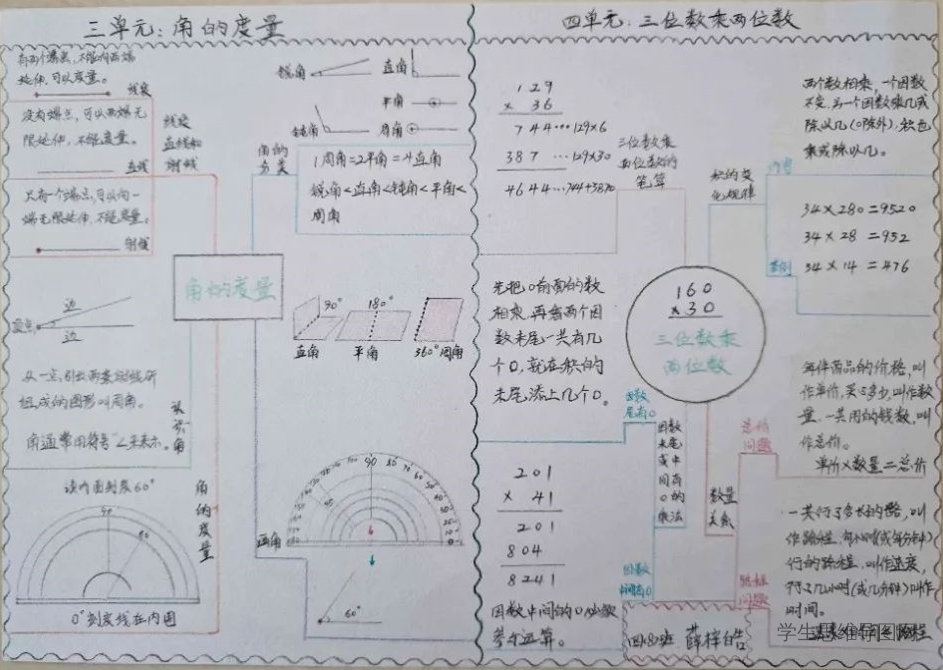 三单元:角的度量
有两个端点,不能向两端
延伸,可以度量。
线段
没有端点,可以两端无
限延伸,不能度量。
直线
只有一个端点,可以向一
端无限延伸,不能度量。
射线
线段
直线和
射线
锐角
直角
平角
钝角
周角
角的
分类
1周角=2平角=4直角
锐角<直角<钝角<平角<
周角
角的度量
边
边
90°
180°
直角
平角
360°周角
从一点引出两条射线所
组成的图形叫做角。
角通常用符号"∠"来表示。
认识角
读内圈刻度60°
90
60
0°刻度线在内圈
角的度量
画角
60°
四单元:三位数乘两位数
129
× 36
744…129×6
387 …129×30
4644…744+3870
三位数乘
两位数的
笔算
积的变
化规律
两个数相乘,一个因数
不变,另一个因数乘几或
除以几(0除外),积也
乘或除以几。
34×280=9520
34×28=952
34×14=476
案例
先把0前面的数
相乘,再看两个因
数末尾一共有几
个0,就在积的
末尾添上几个0。
160
×30
三位数乘
两位数
因数
末尾有0
因数末尾或中间有0的乘法
因数
中间有0
201
× 41
201
804
8241
因数中间的0必须
参与运算。
数量
关系
总价
问题
每件商品的价格,叫
作单价,买了多少,叫作数
量,一共用的钱数,叫
作总价。
单价×数量=总价
路程
问题
一共行了多长的路,叫
作路程,每小时(或每分钟)
行的路程,叫作速度,
行了几小时(或几分钟)叫作
时间。